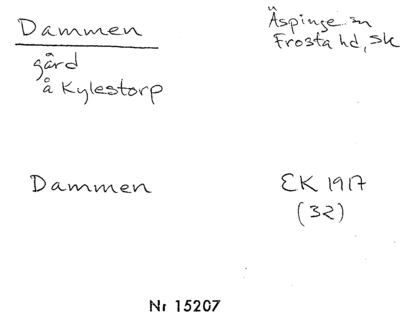 Dammen
Äspinge sn
Frosta hd, Sk
gård
å Kylestorp
Dammen
EK 1917
(32)
Nr 15207